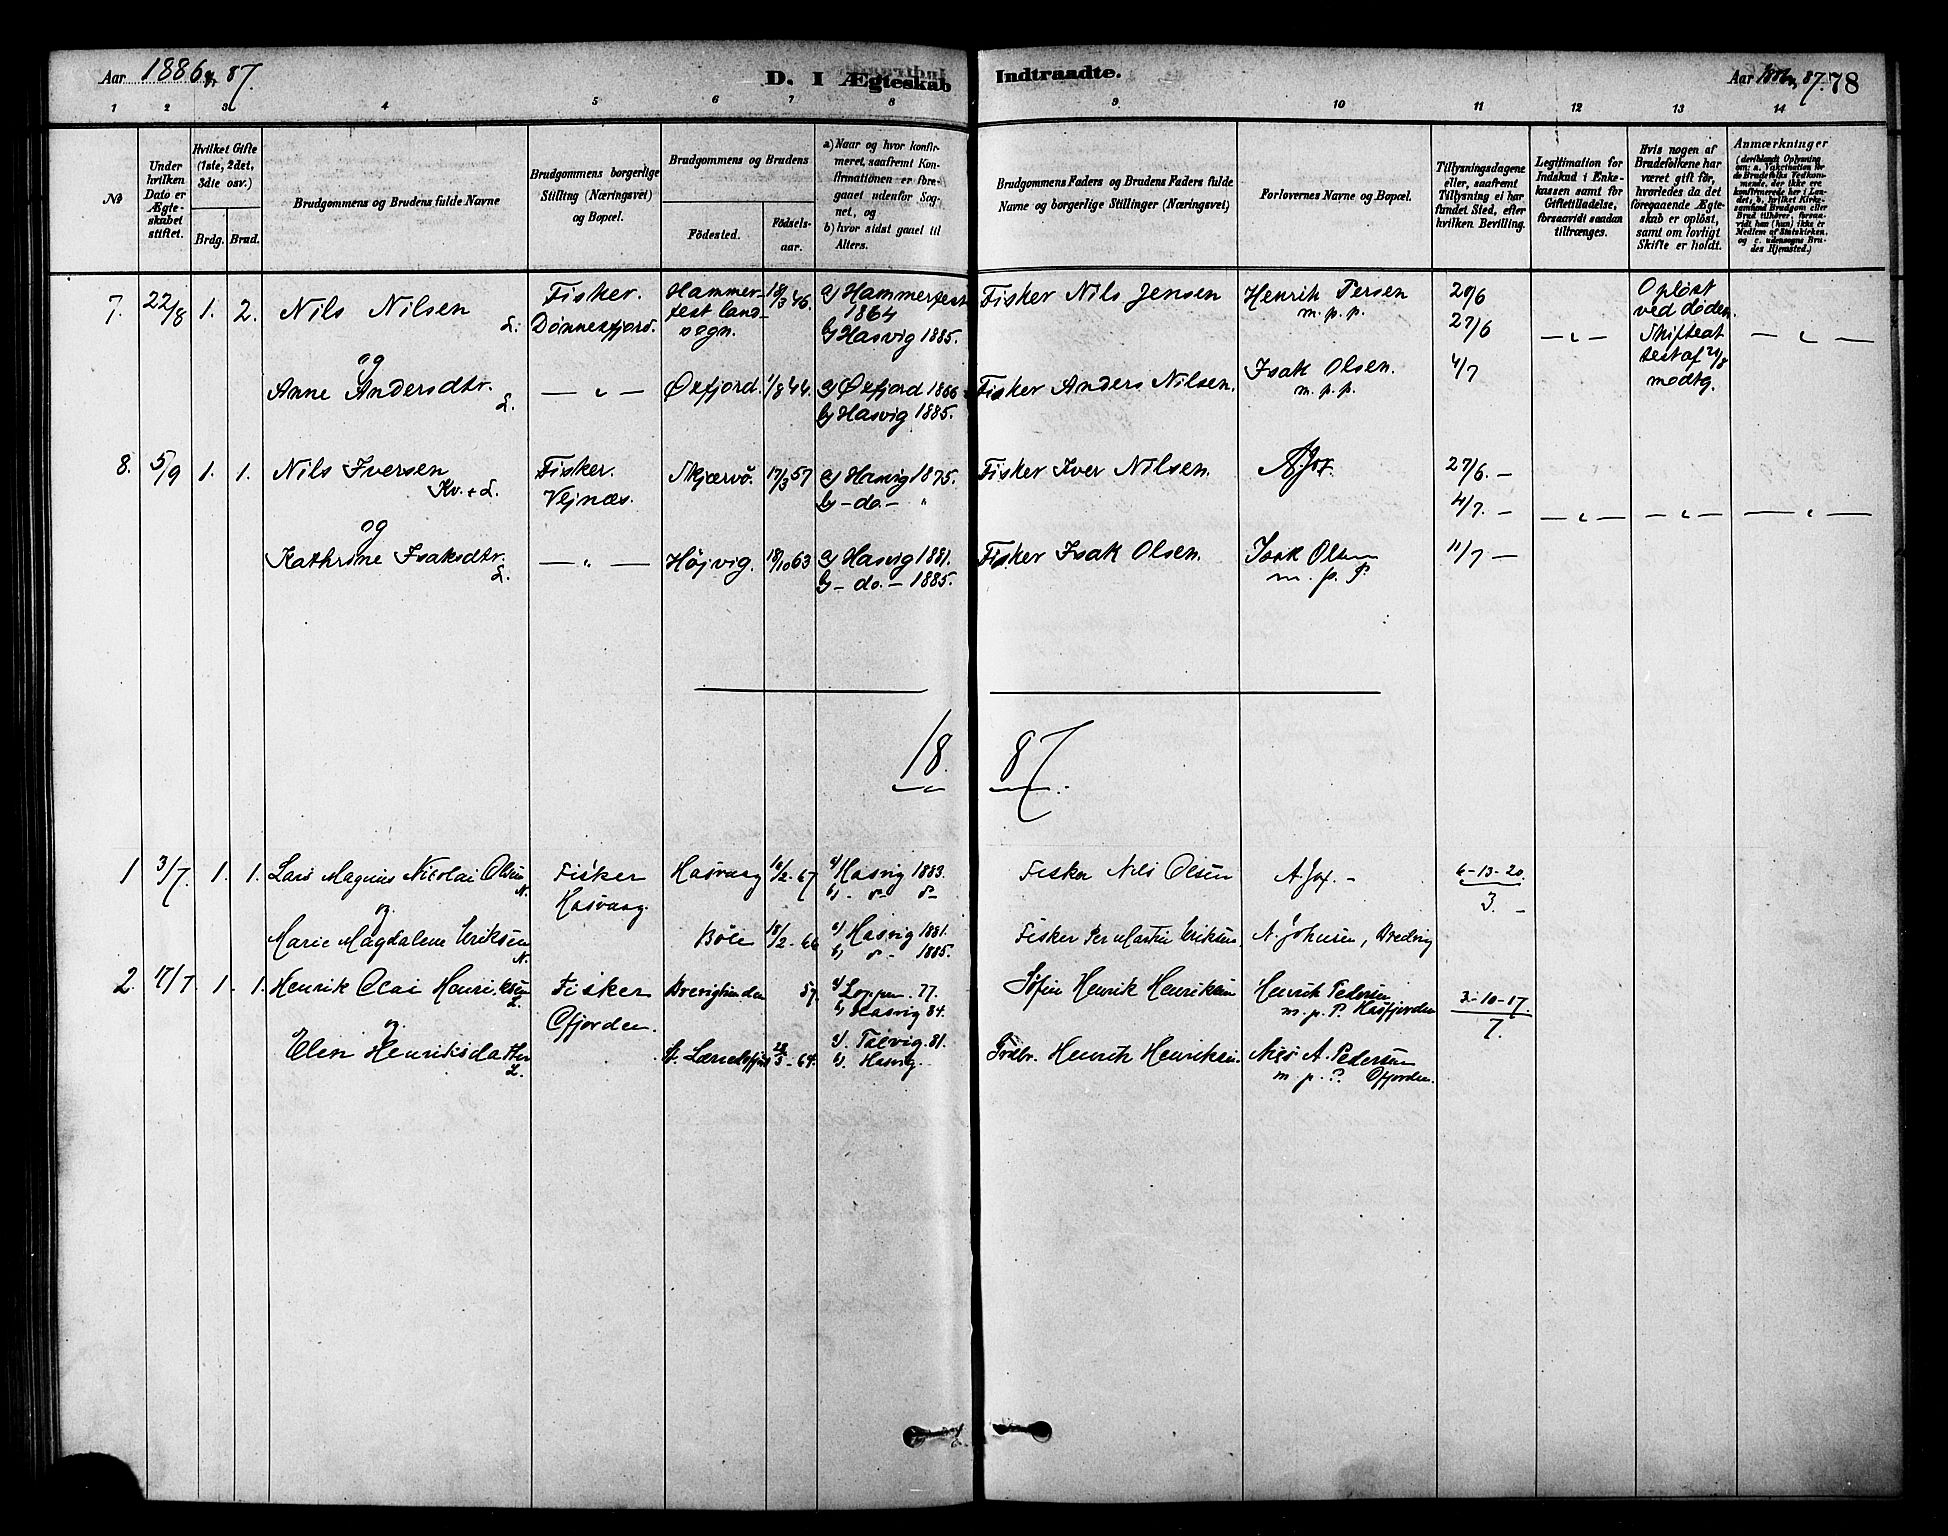 Aar 1886 & 87.
D. I Ægteskab Indtraadte.
Aar 1886 & 87. 78
1 2 3 4 5 6 7 8 9 10 11 12 13 14
No
Under hvilken Dato er Ægteskabet stiftet.
Hvilket Gifte (1ste, 2det, 3die osv.)
Brdg. Brud.
Brudgommens og Brudens fulde Navne
Brudgommens borgerlige Stilling (Næringsvei) og Bopæl.
Brudgommens og Brudens
Födested. Födselsaar.
a) Naar og hvor konfirmeret, saafremt Konfirmationen er foregaaet udenfor Sognet, og
b) hvor sidst gaaet til Alters.
Brudgommens Faders og Brudens Faders fulde Navne og borgerlige Stillinger (Næringsvei)
Forlovernes Navne og Bopæl.
Tillysningsdagene eller, saafremt Tillysning ei har fundet Sted, efter hvilken Bevilling.
Legitimation for Indskud i Enkekassen samt for Giftetilladelse, forsaavidt saadan tiltrænges.
Hvis nogen af Brudefolkene har været gift før, hvorledes da det foregaaende Ægteskab er opløst, samt om lovligt Skifte er holdt.
Anmærkninger
(deriblandt Oplysning om: a. Vakcination for de Brudefolks Vedkommende, der ikke ere konfirmerede her i Landet; b. hvilket Kirkesamfund Brudgom eller Brud tilhører, forsaavidt han (hun) ikke er Medlem af Statskirken, og c. udensogns Brudes Hjemsted.)
7. 22/8 1. 2. Nils Nilsen L. Fisker. Dönnesfjord. Hammerfest landsogn. 18/3 46. a) Hammerfest 1864 b) Hasvig 1885. Fisker Nils Jensen Henrik Persen m.p.p. 20/6 27/6 4/7 — " — Opløst ved døden. Skifteattest af 21/8 modtg. — " —
og
Anne Andersdtr. L. — " — Øxfjord. 1/8 44. a) Øxfjord 1866 b) Hasvig 1885. Fisker Anders Nilsen. Isak Olsen. m.p.p.
8. 5/9 1. 1. Nils Iversen Kv. + L. Fisker. Vejnæs. Skjærvö. 17/3 57 a) Hasvig 1875. b) - do - " Fisker Iver Nilsen. 27/6. - 4/7. - 11/7 - — " — — " — — " —
og
Kathrine Isaksdtr. L. — " — Højvig. 18/10 63 a) Hasvig 1881. b) - do. - 1885. Fisker Isak Olsen. Isak Olsen m.p.P.
18 87
1 3/7. 1. 1. Lars Magnus Nicolai Olsen N. Fisker Hasvaag. Hasvaag 10/2 - 67 a) Hasvig 1883. Fisker Nils Olsen 6-13-20. 3. -
og
Marie Magdalene Eriksen N. Böle 18/2 - 66 a) Hasvig 1881. b) 1885. Fisker Per Martin Eriksen. A. Johnsen,
2. 17/7 1. 1. Henrik Olai Henriksen L. Fisker Ofjorden. 57. a) Loppen. 77. b) Hasvig 84. Henrik Henriksen Henrik Pedersen m.p.P. Hasfjorden 3-10-17. 7.
og
Elen Henriksdatter L. - 64. a). Talvig. 81. b). Hasvig. Henrik Henriksen. Nils A. Pedersen m.p.P. Ofjorden.